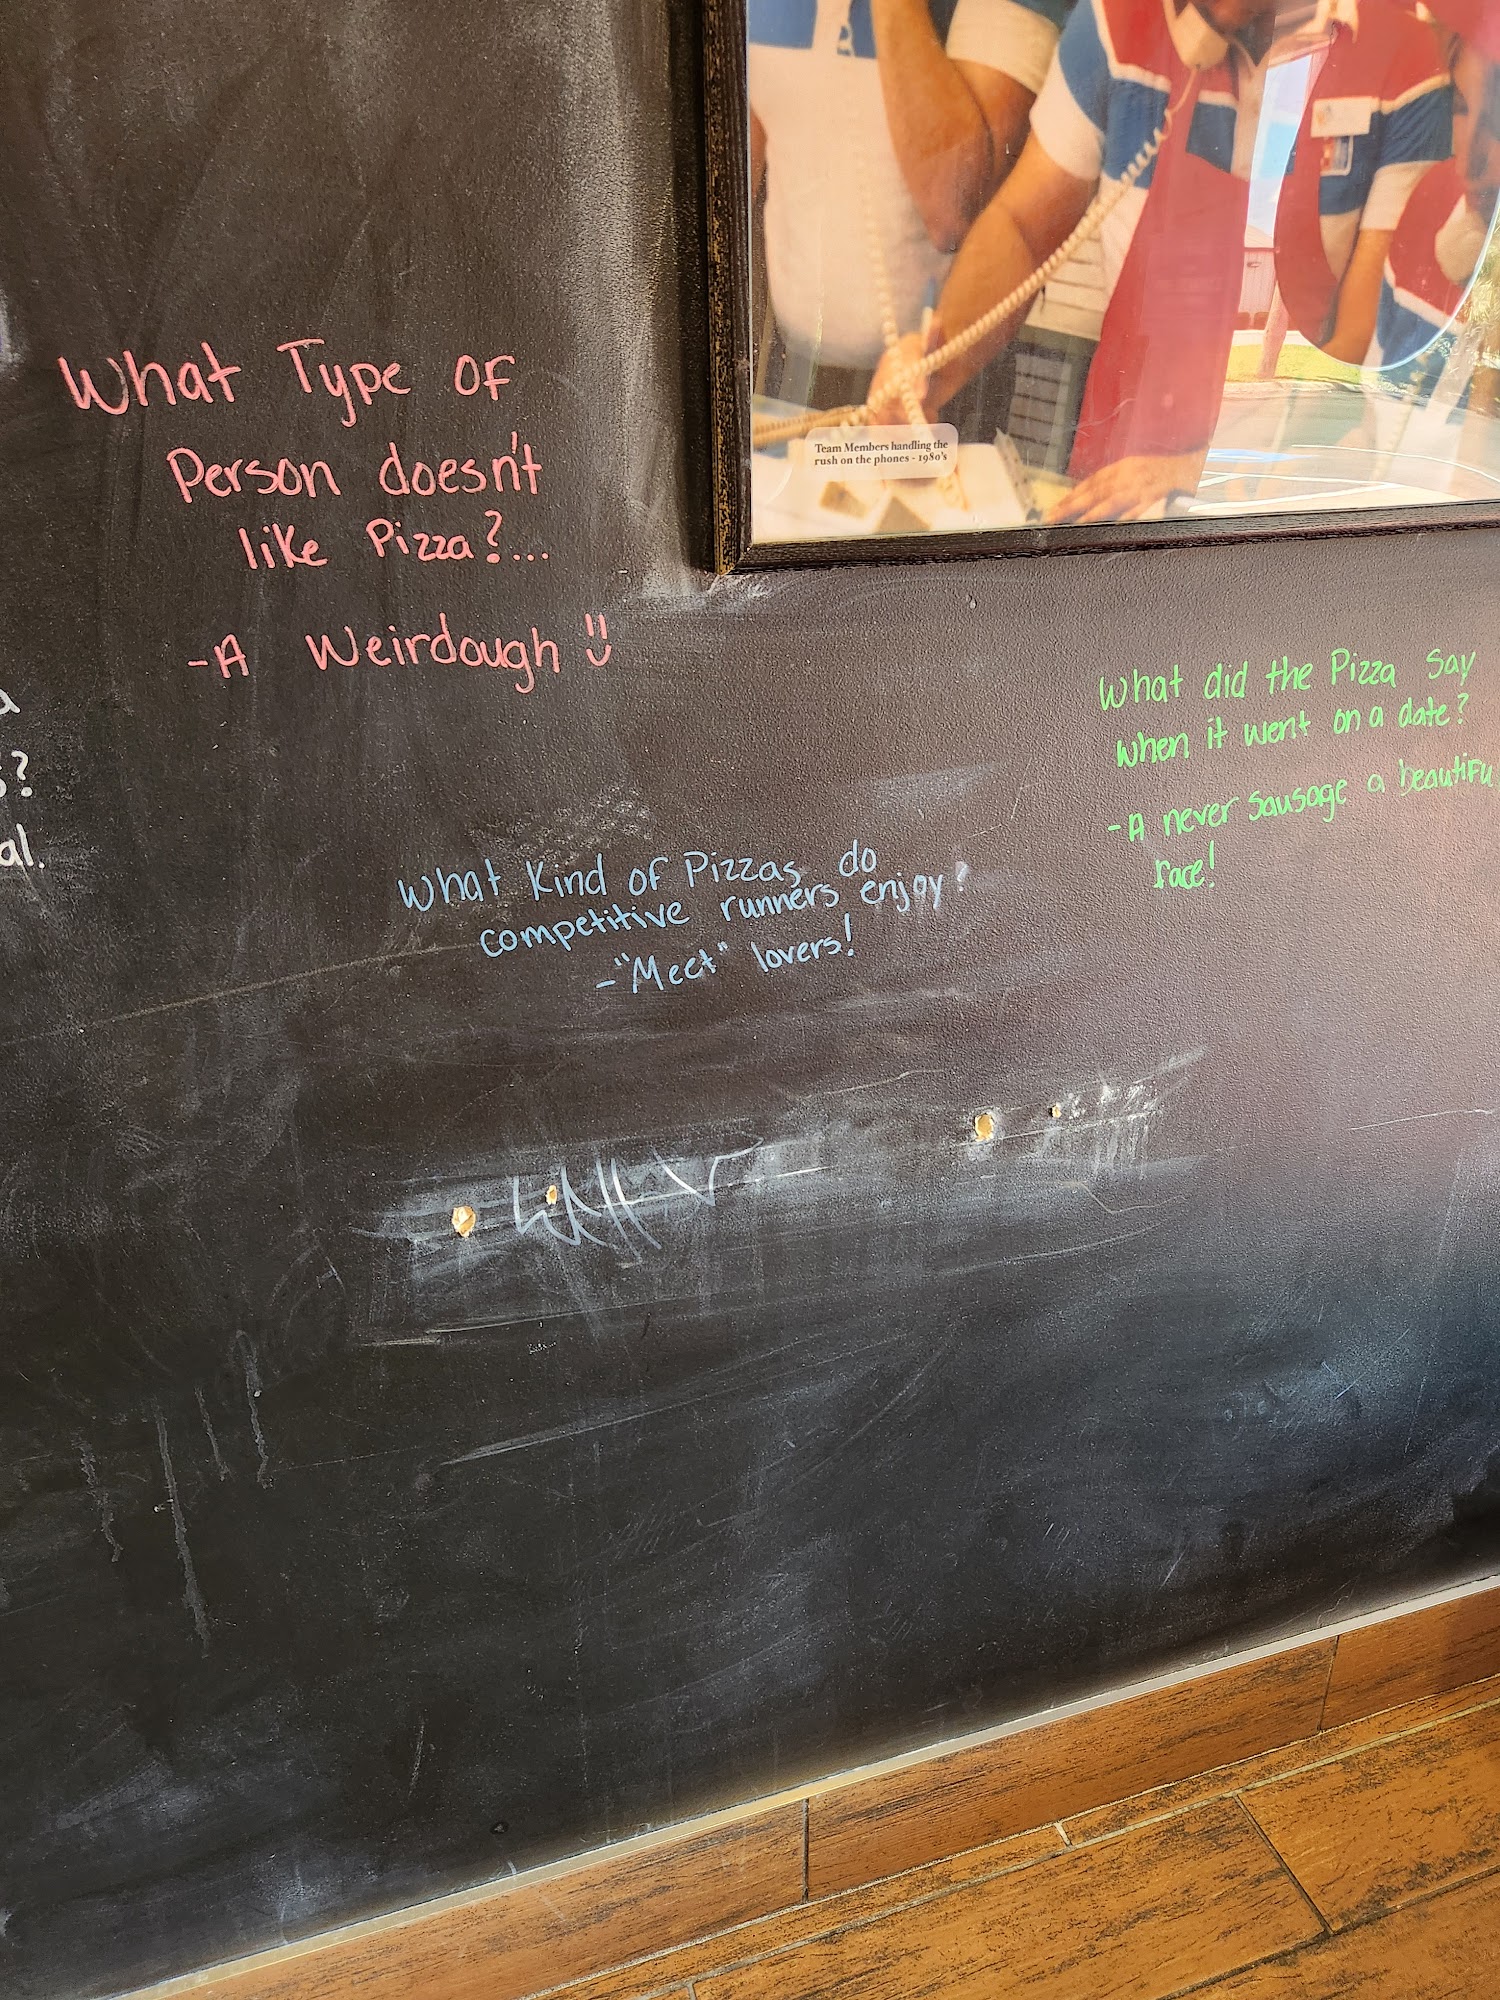 Team Members handling the
rush on the phones - 1980's
What Type of
Person doesn't
like Pizza?...
-A Weirdough
?
al.
What did the Pizza Say
When it went on a date?
-A never sausage a beautifu
face!
What Kind of Pizzas do
competitive runners enjoy?
-"Meet" lovers!